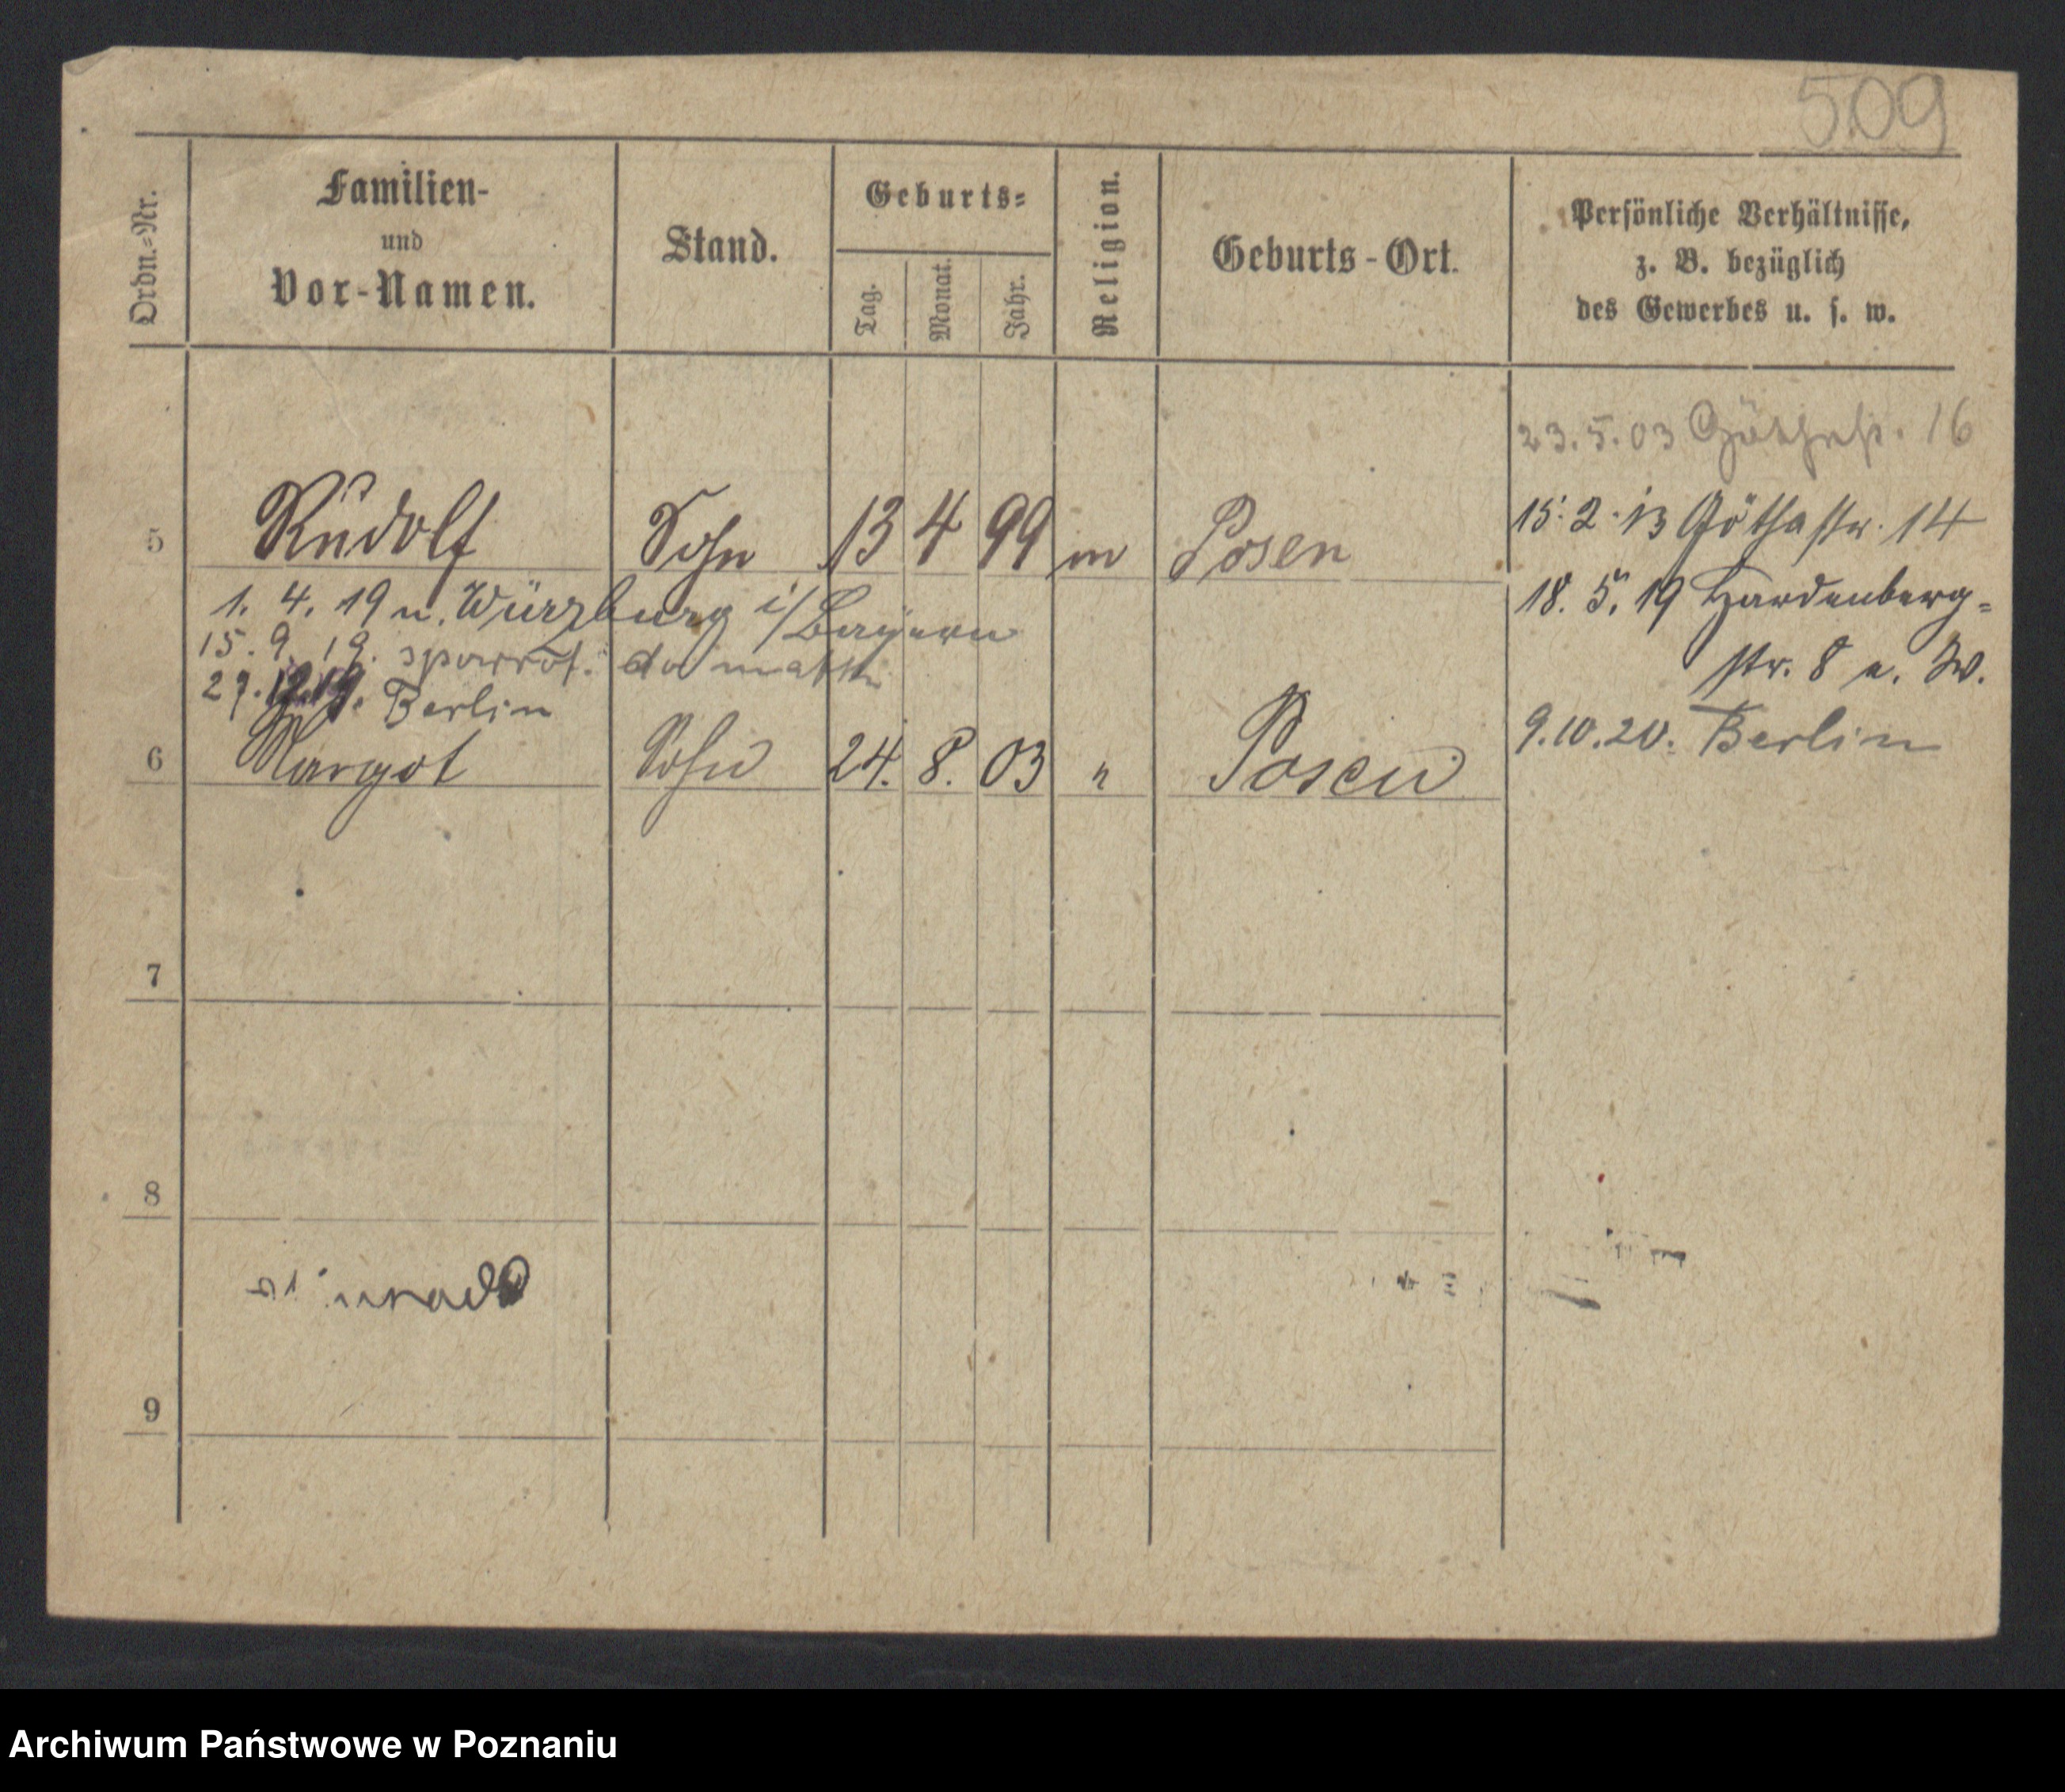 509
Ordn.-Nr.
Familien-
und
Vor-Namen.
Stand.
Geburts-
Tag.
Monat.
Jahr.
Religion.
Geburts-Ort.
Persönliche Verhältnisse,
z. B. bezüglich
des Gewerbes u. s. w.
23.5.03 Göthestr. 16
15.2.13 Göthestr. 14
5 Rudolf Sohn 13 4 99 m Posen
18.5.19 Hardenberg-
str. 8 a. W.
1. 4. 19 n. Würzburg i/Bayern
15. 9. 19.
27.12.19. Berlin
9.10.20. Berlin
6 Margot Sohn 24. 8. 03 " Posen
7
8
9
Archiwum Państwowe w Poznaniu